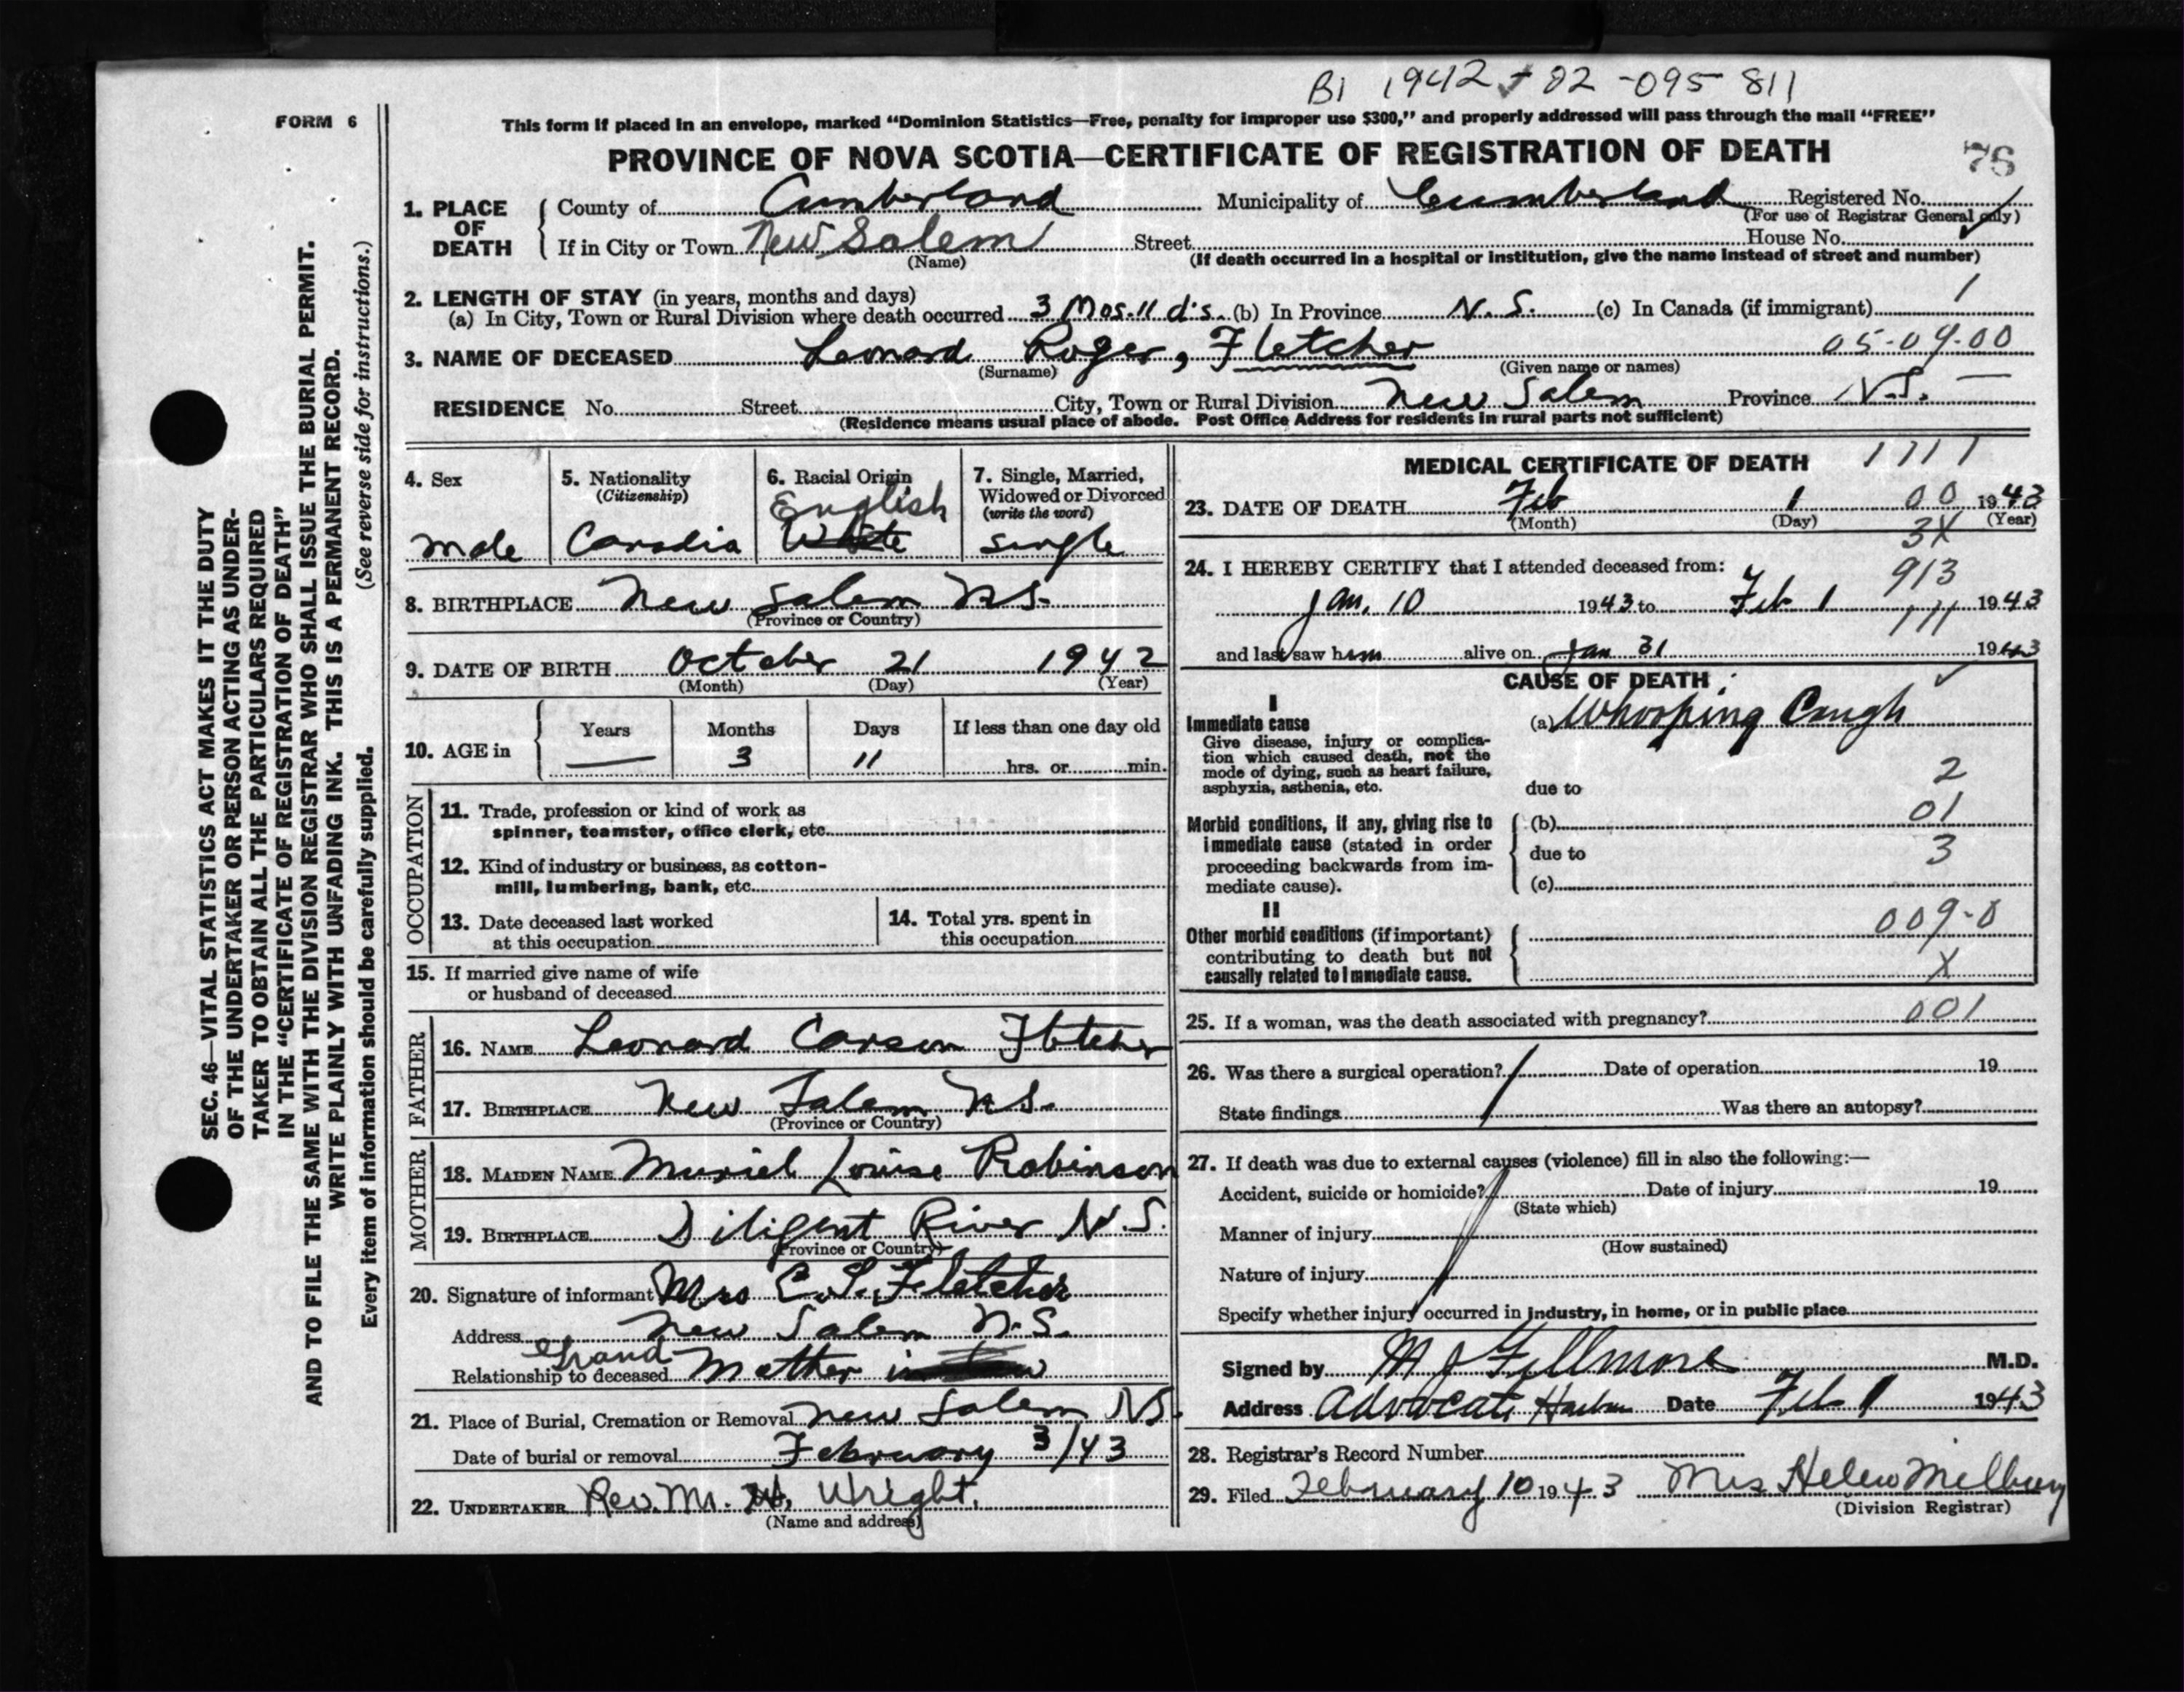 B1 1942-02-095811
FORM 6
This form if placed in an envelope, marked "Dominion Statistics—Free, penalty for improper use $300," and properly addressed will pass through the mail "FREE"
PROVINCE OF NOVA SCOTIA—CERTIFICATE OF REGISTRATION OF DEATH
76
1. PLACE OF DEATH
County of Cumberland Municipality of Cumberland Registered No.
(For use of Registrar General only)
If in City or Town New Salem Street House No.
(Name) (If death occurred in a hospital or institution, give the name instead of street and number)
2. LENGTH OF STAY (in years, months and days)
(a) In City, Town or Rural Division where death occurred 3 Mos. 11 d's. (b) In Province N.S. (c) In Canada (if immigrant) 1
3. NAME OF DECEASED Leonard Roger, Fletcher 05-09-00
(Surname) (Given name or names)
RESIDENCE No. Street City, Town or Rural Division New Salem Province N.S. —
(Residence means usual place of abode. Post Office Address for residents in rural parts not sufficient)
4. Sex male
5. Nationality (Citizenship) Canadia
6. Racial Origin English White
7. Single, Married, Widowed or Divorced (write the word) single
8. BIRTHPLACE New Salem N.S.
(Province or Country)
9. DATE OF BIRTH October 21 1942
(Month) (Day) (Year)
10. AGE in Years — Months 3 Days 11 If less than one day old hrs. or min.
OCCUPATION
11. Trade, profession or kind of work as
spinner, teamster, office clerk, etc.
12. Kind of industry or business, as cotton-
mill, lumbering, bank, etc.
13. Date deceased last worked
at this occupation
14. Total yrs. spent in
this occupation
15. If married give name of wife
or husband of deceased
FATHER
16. NAME Leonard Carson Fletcher
17. BIRTHPLACE New Salem N.S.
(Province or Country)
MOTHER
18. MAIDEN NAME Muriel Louise Robinson
19. BIRTHPLACE Diligent River N.S.
(Province or Country)
20. Signature of informant Mrs C.S. Fletcher
Address New Salem N.S.
Relationship to deceased Grand Mother
21. Place of Burial, Cremation or Removal New Salem NS.
Date of burial or removal February 3/43
22. UNDERTAKER Rev. Mr. Wright.
(Name and address)
MEDICAL CERTIFICATE OF DEATH 1711
23. DATE OF DEATH Feb 1 00 1943
(Month) (Day) (Year)
3X
24. I HEREBY CERTIFY that I attended deceased from: 913
Jan. 10 1943 to Feb 1 1943
111
and last saw him alive on Jan 31 1943
CAUSE OF DEATH
I
Immediate cause
Give disease, injury or complica-
tion which caused death, not the
mode of dying, such as heart failure,
asphyxia, asthenia, etc.
(a) Whooping Cough
2
due to
Morbid conditions, if any, giving rise to
immediate cause (stated in order
proceeding backwards from im-
mediate cause).
(b) 01
due to 3
(c)
II
Other morbid conditions (if important)
contributing to death but not
causally related to immediate cause.
009-0
X
25. If a woman, was the death associated with pregnancy? 001
26. Was there a surgical operation? Date of operation 19
State findings Was there an autopsy?
27. If death was due to external causes (violence) fill in also the following:—
Accident, suicide or homicide? Date of injury 19
(State which)
Manner of injury
(How sustained)
Nature of injury
Specify whether injury occurred in industry, in home, or in public place
Signed by M J Fillmore M.D.
Address Advocate Harbor Date Feb 1 1943
28. Registrar's Record Number
29. Filed February 10 1943 Mrs Helen Milbury
(Division Registrar)
SEC. 46—VITAL STATISTICS ACT MAKES IT THE DUTY
OF THE UNDERTAKER OR PERSON ACTING AS UNDER-
TAKER TO OBTAIN ALL THE PARTICULARS REQUIRED
IN THE "CERTIFICATE OF REGISTRATION OF DEATH"
AND TO FILE THE SAME WITH THE DIVISION REGISTRAR WHO SHALL ISSUE THE BURIAL PERMIT.
WRITE PLAINLY WITH UNFADING INK. THIS IS A PERMANENT RECORD.
(See reverse side for instructions.)
Every item of information should be carefully supplied.